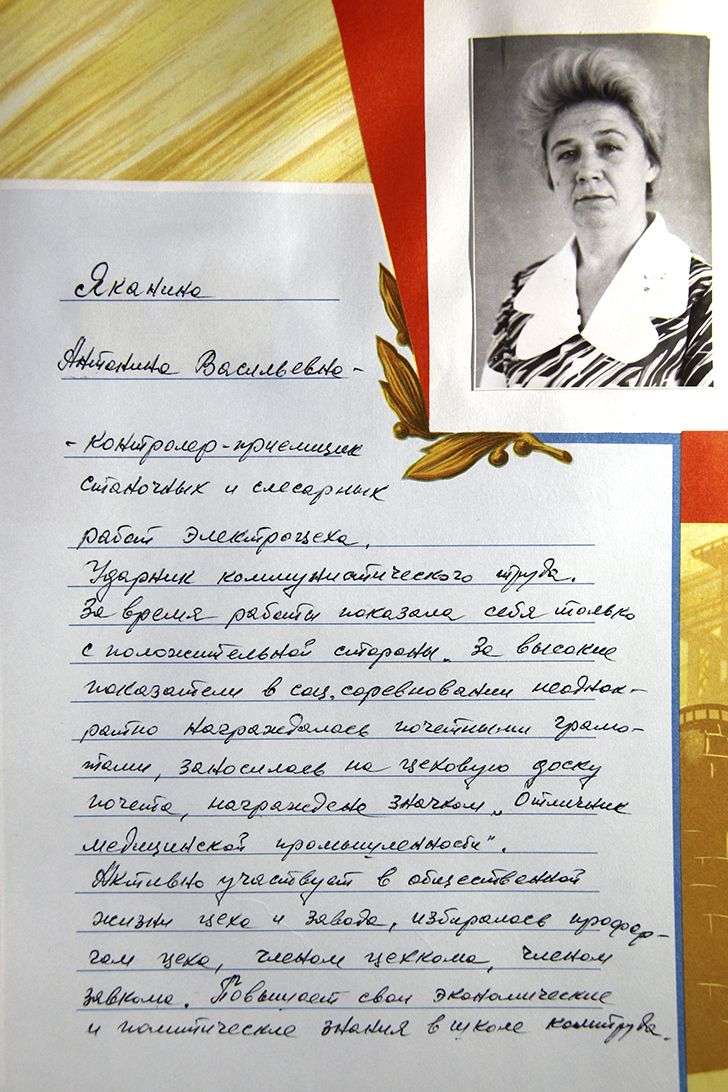 Яканина
Антонина Васильевна -
- контролер-приемщик
станочных и слесарных
работ электроцеха.
Ударник коммунистического труда.
За время работы показала себя только
с положительной стороны. За высокие
показатели в соц. соревновании неоднок-
ратно награждалась почетными грамо-
тами, заносилась на цеховую доску
почета, награждена значком „Отличник
медицинской промышленности".
Активно участвует в общественной
жизни цеха и завода, избиралась профор-
гом цеха, членом цехкома, членом
завкома. Повышает свои экономические
и политические знания в школе комтруда.